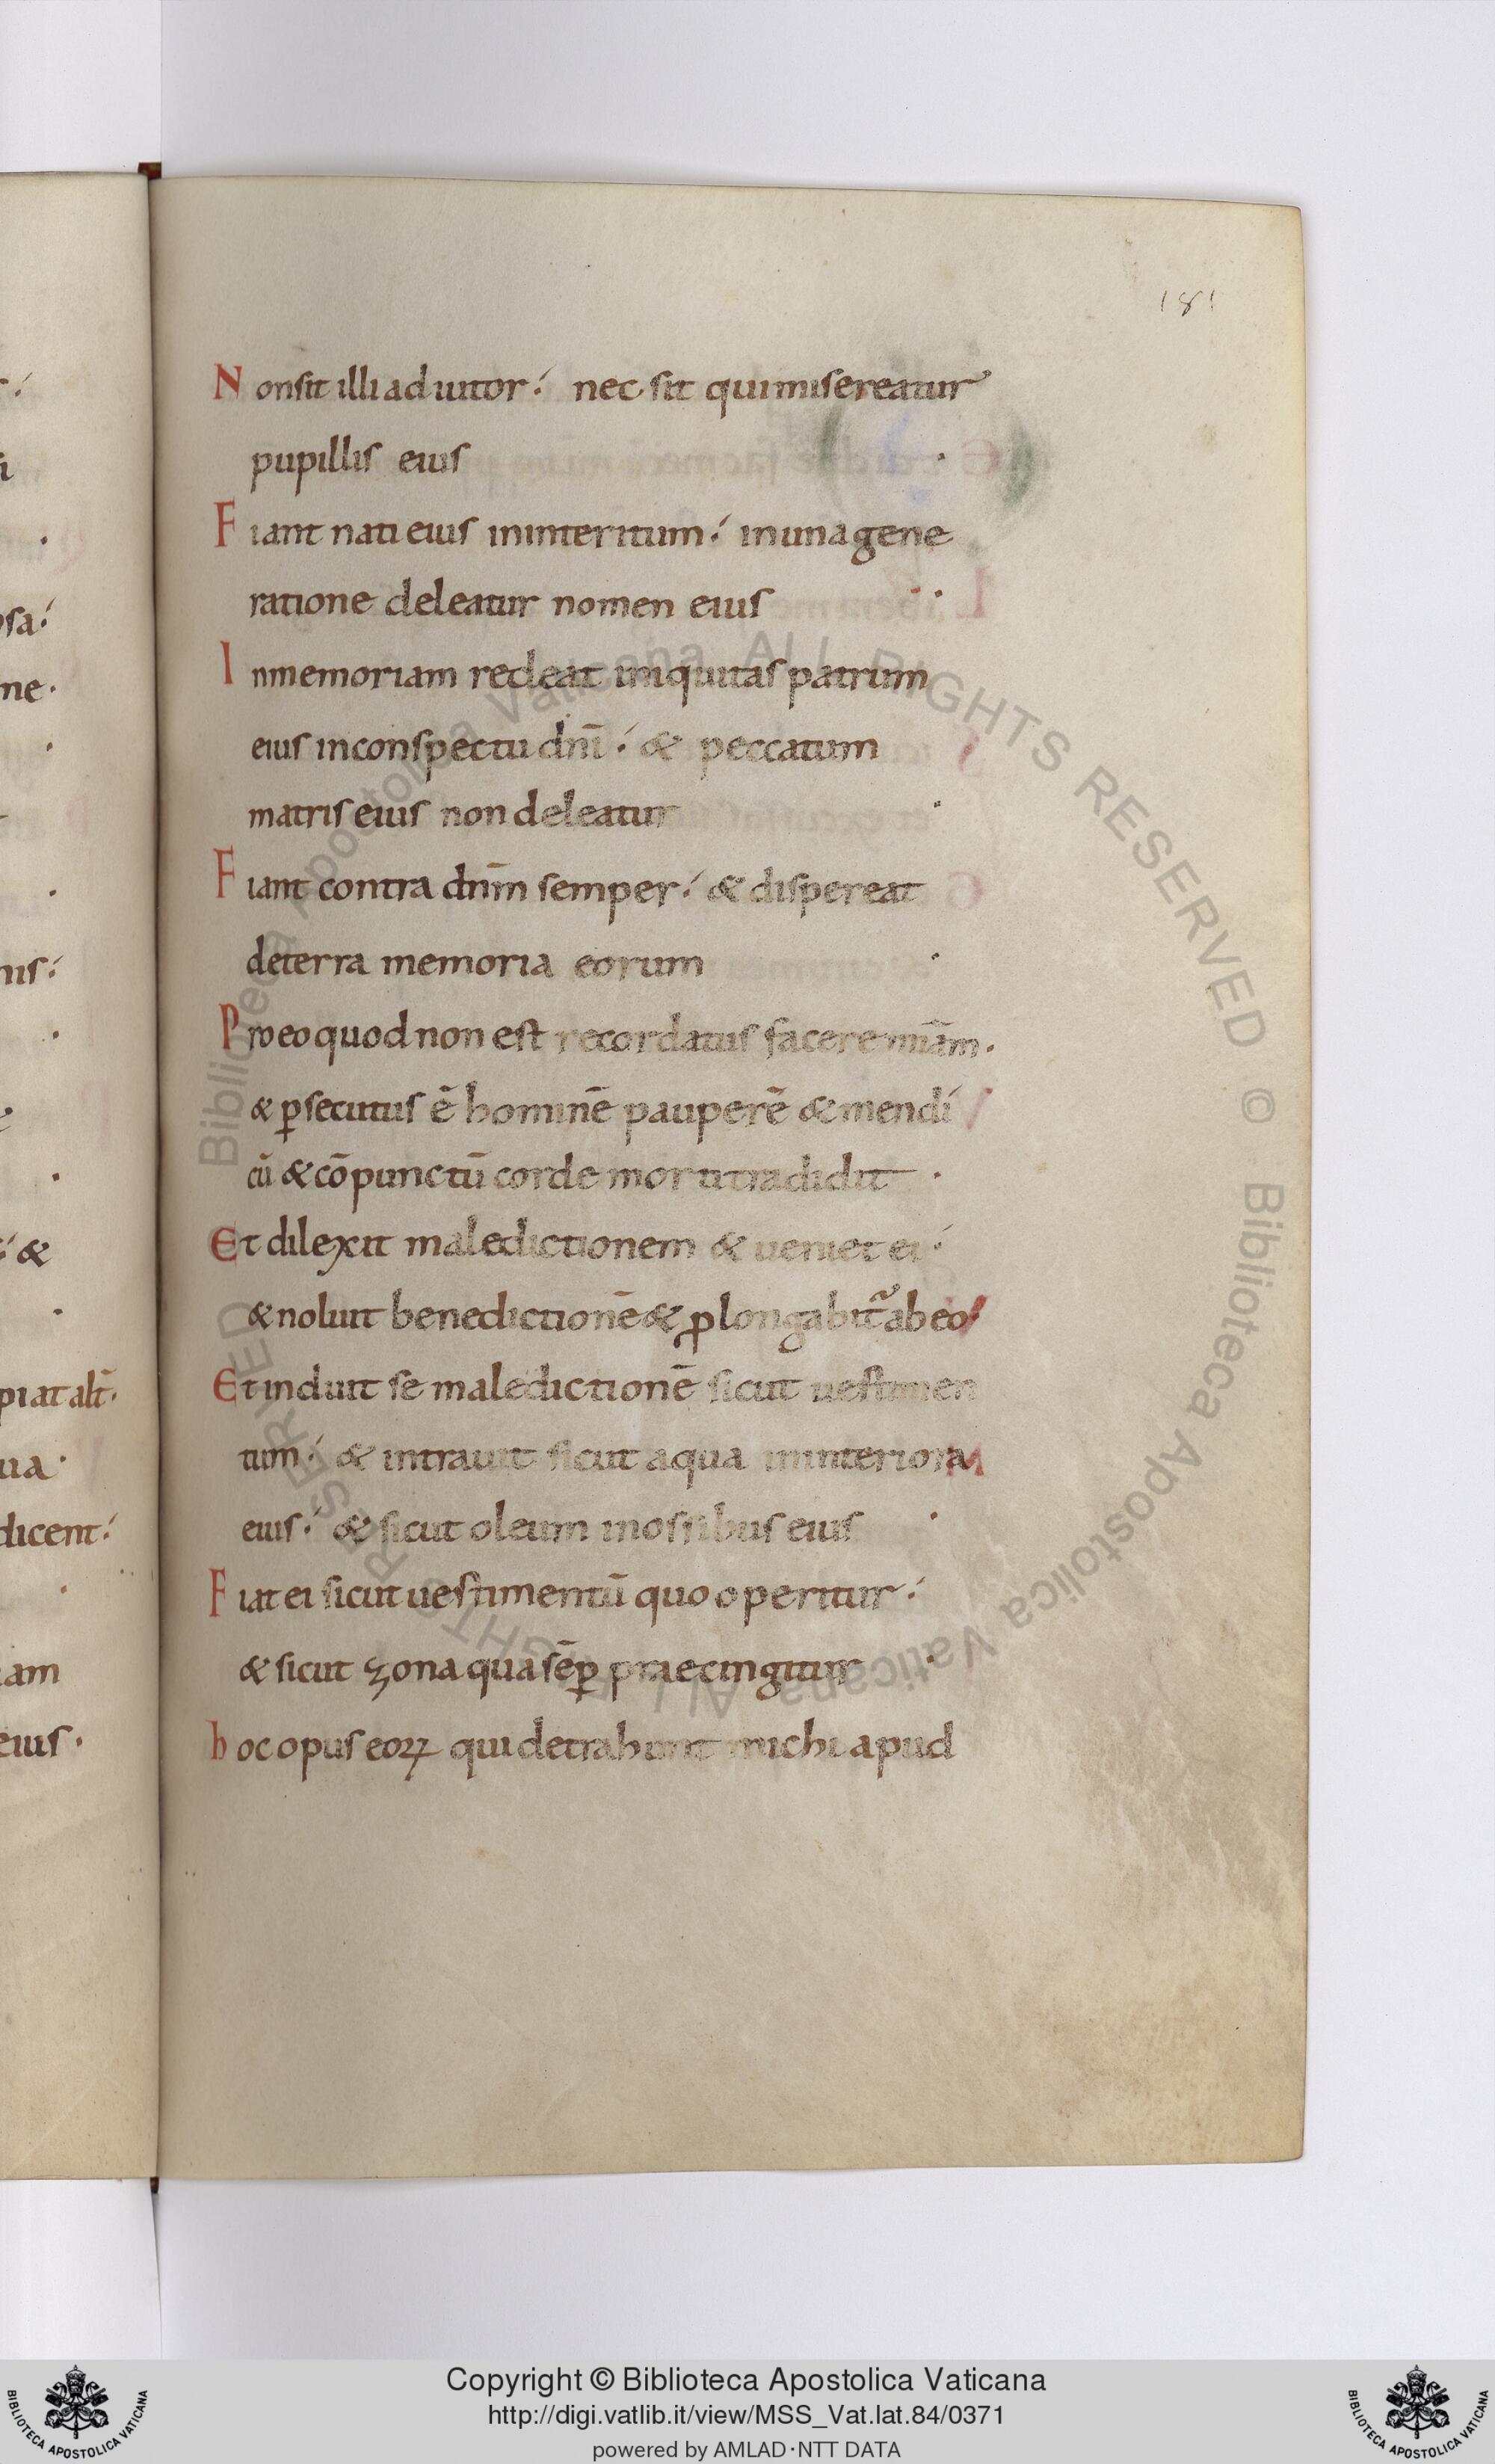 181
Non sit illi adiutor nec sit qui misereatur
pupillis eius
Fiant nati eius in interitum in una gene
ratione deleatur nomen eius
In memoriam redeat iniquitas patrum
eius in conspectu dnī & peccatum
matris eius non deleatur
Fiant contra dnm̄ semper & dispereat
de terra memoria eorum
Pro eo quod non est recordatus facere miam̄
& ꝑsecutus ē hominē pauperē & mendi
cū & cōpunctū corde morti tradidit
Et dilexit maledictionem & ueniet ei
& noluit benedictionē & ꝓlongabit᷑ ab eo
Et induit se maledictionē sicut uestimen
tum & intrauit sicut aqua in interiora
eius & sicut oleum in ossibus eius
Fiat ei sicut uestimentū quo operitur
& sicut zona qua sēꝑ praecingitur
hoc opus eoꝝ qui detrahunt michi apud
osa
ne
nis
&
piat alt̄
ua
dicent
iam
eius
Biblioteca Apostolica Vaticana ALL RIGHTS RESERVED © Biblioteca Apostolica Vaticana ALL RIGHTS RESERVED
Copyright © Biblioteca Apostolica Vaticana
http://digi.vatlib.it/view/MSS_Vat.lat.84/0371
powered by AMLAD·NTT DATA
BIBLIOTECA APOSTOLICA VATICANA
BIBLIOTECA APOSTOLICA VATICANA